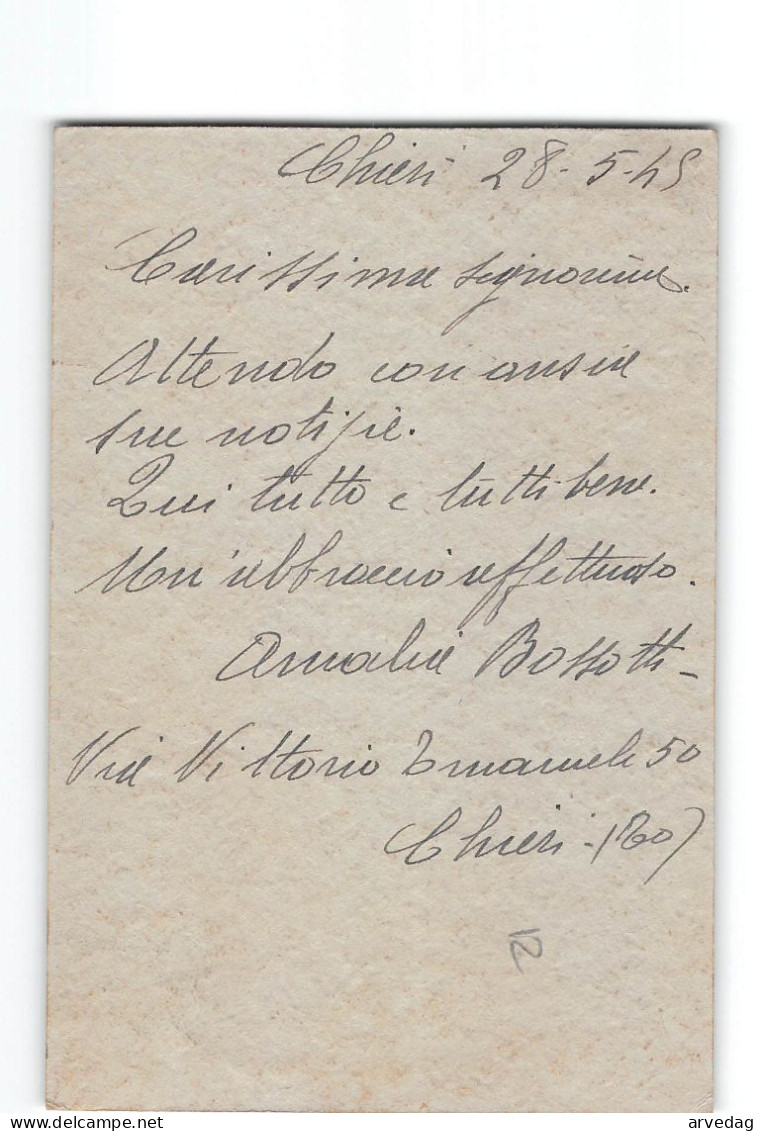 Chieri 28-5-45
Carissima signorina.
Attendo con ansia
sue notizie.
Qui tutto e tutti bene.
Un'abbraccio affettuoso.
Amalia Bossotti -
Via Vittorio Emanuele 50
Chieri - (To)
12
delcampe.net
arvedag